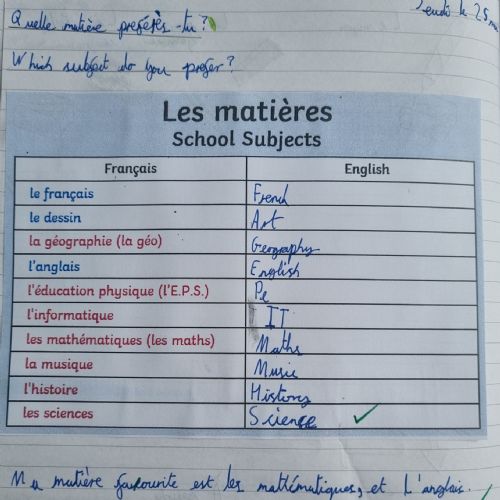 Jeudi le 25
Quelle matière preférès-tu?
Which subject do you prefer?
Les matières
School Subjects
Français English
le français French
le dessin Art
la géographie (la géo) Geography
l'anglais English
l'éducation physique (l'E.P.S.) Pe
l'informatique IT
les mathématiques (les maths) Maths
la musique Music
l'histoire History
les sciences Science
Ma matière favourite est les mathématiques, et L'anglais.